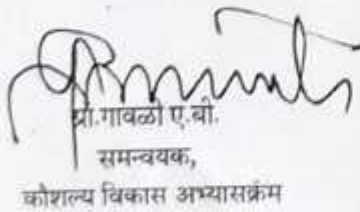 प्रा.गावळी ए.बी.
समन्वयक,
कौशल्य विकास अभ्यासक्रम